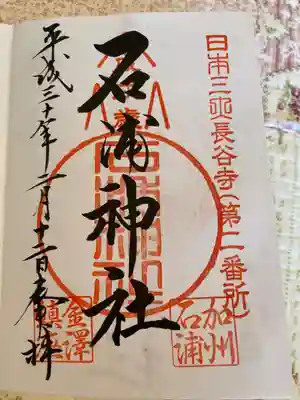 日本三大長谷寺(第二番所)
加州
石浦
石浦神社
金澤
鎮
平成三十年二月十二日奉拝